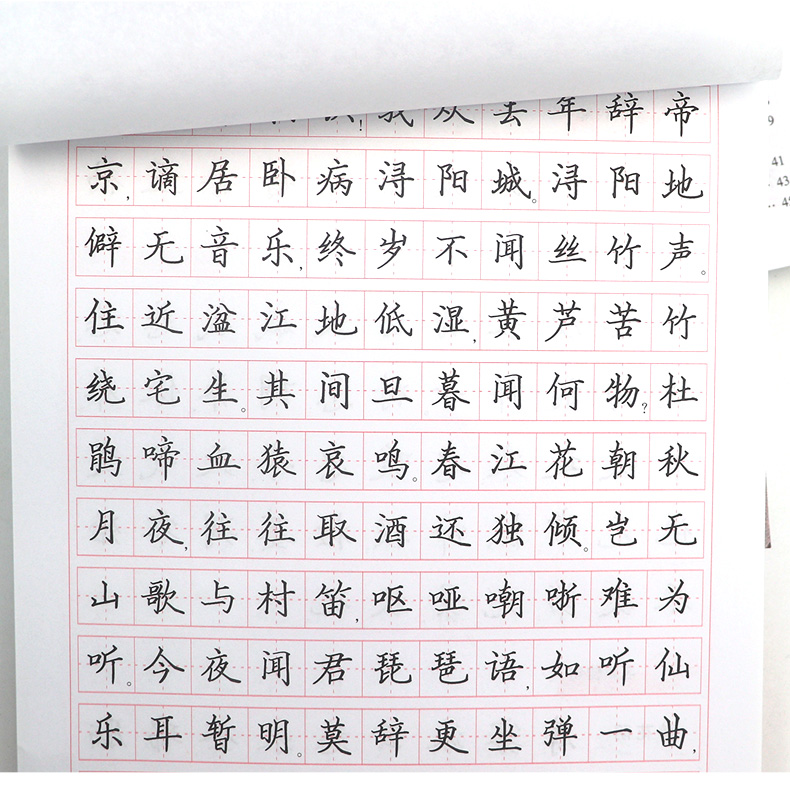 识！我从去年辞帝
京，谪居卧病浔阳城。浔阳地
僻无音乐，终岁不闻丝竹声。
住近湓江地低湿，黄芦苦竹
绕宅生。其间旦暮闻何物？杜
鹃啼血猿哀鸣。春江花朝秋
月夜，往往取酒还独倾。岂无
山歌与村笛，呕哑嘲哳难为
听。今夜闻君琵琶语，如听仙
乐耳暂明。莫辞更坐弹一曲，
9
41
43